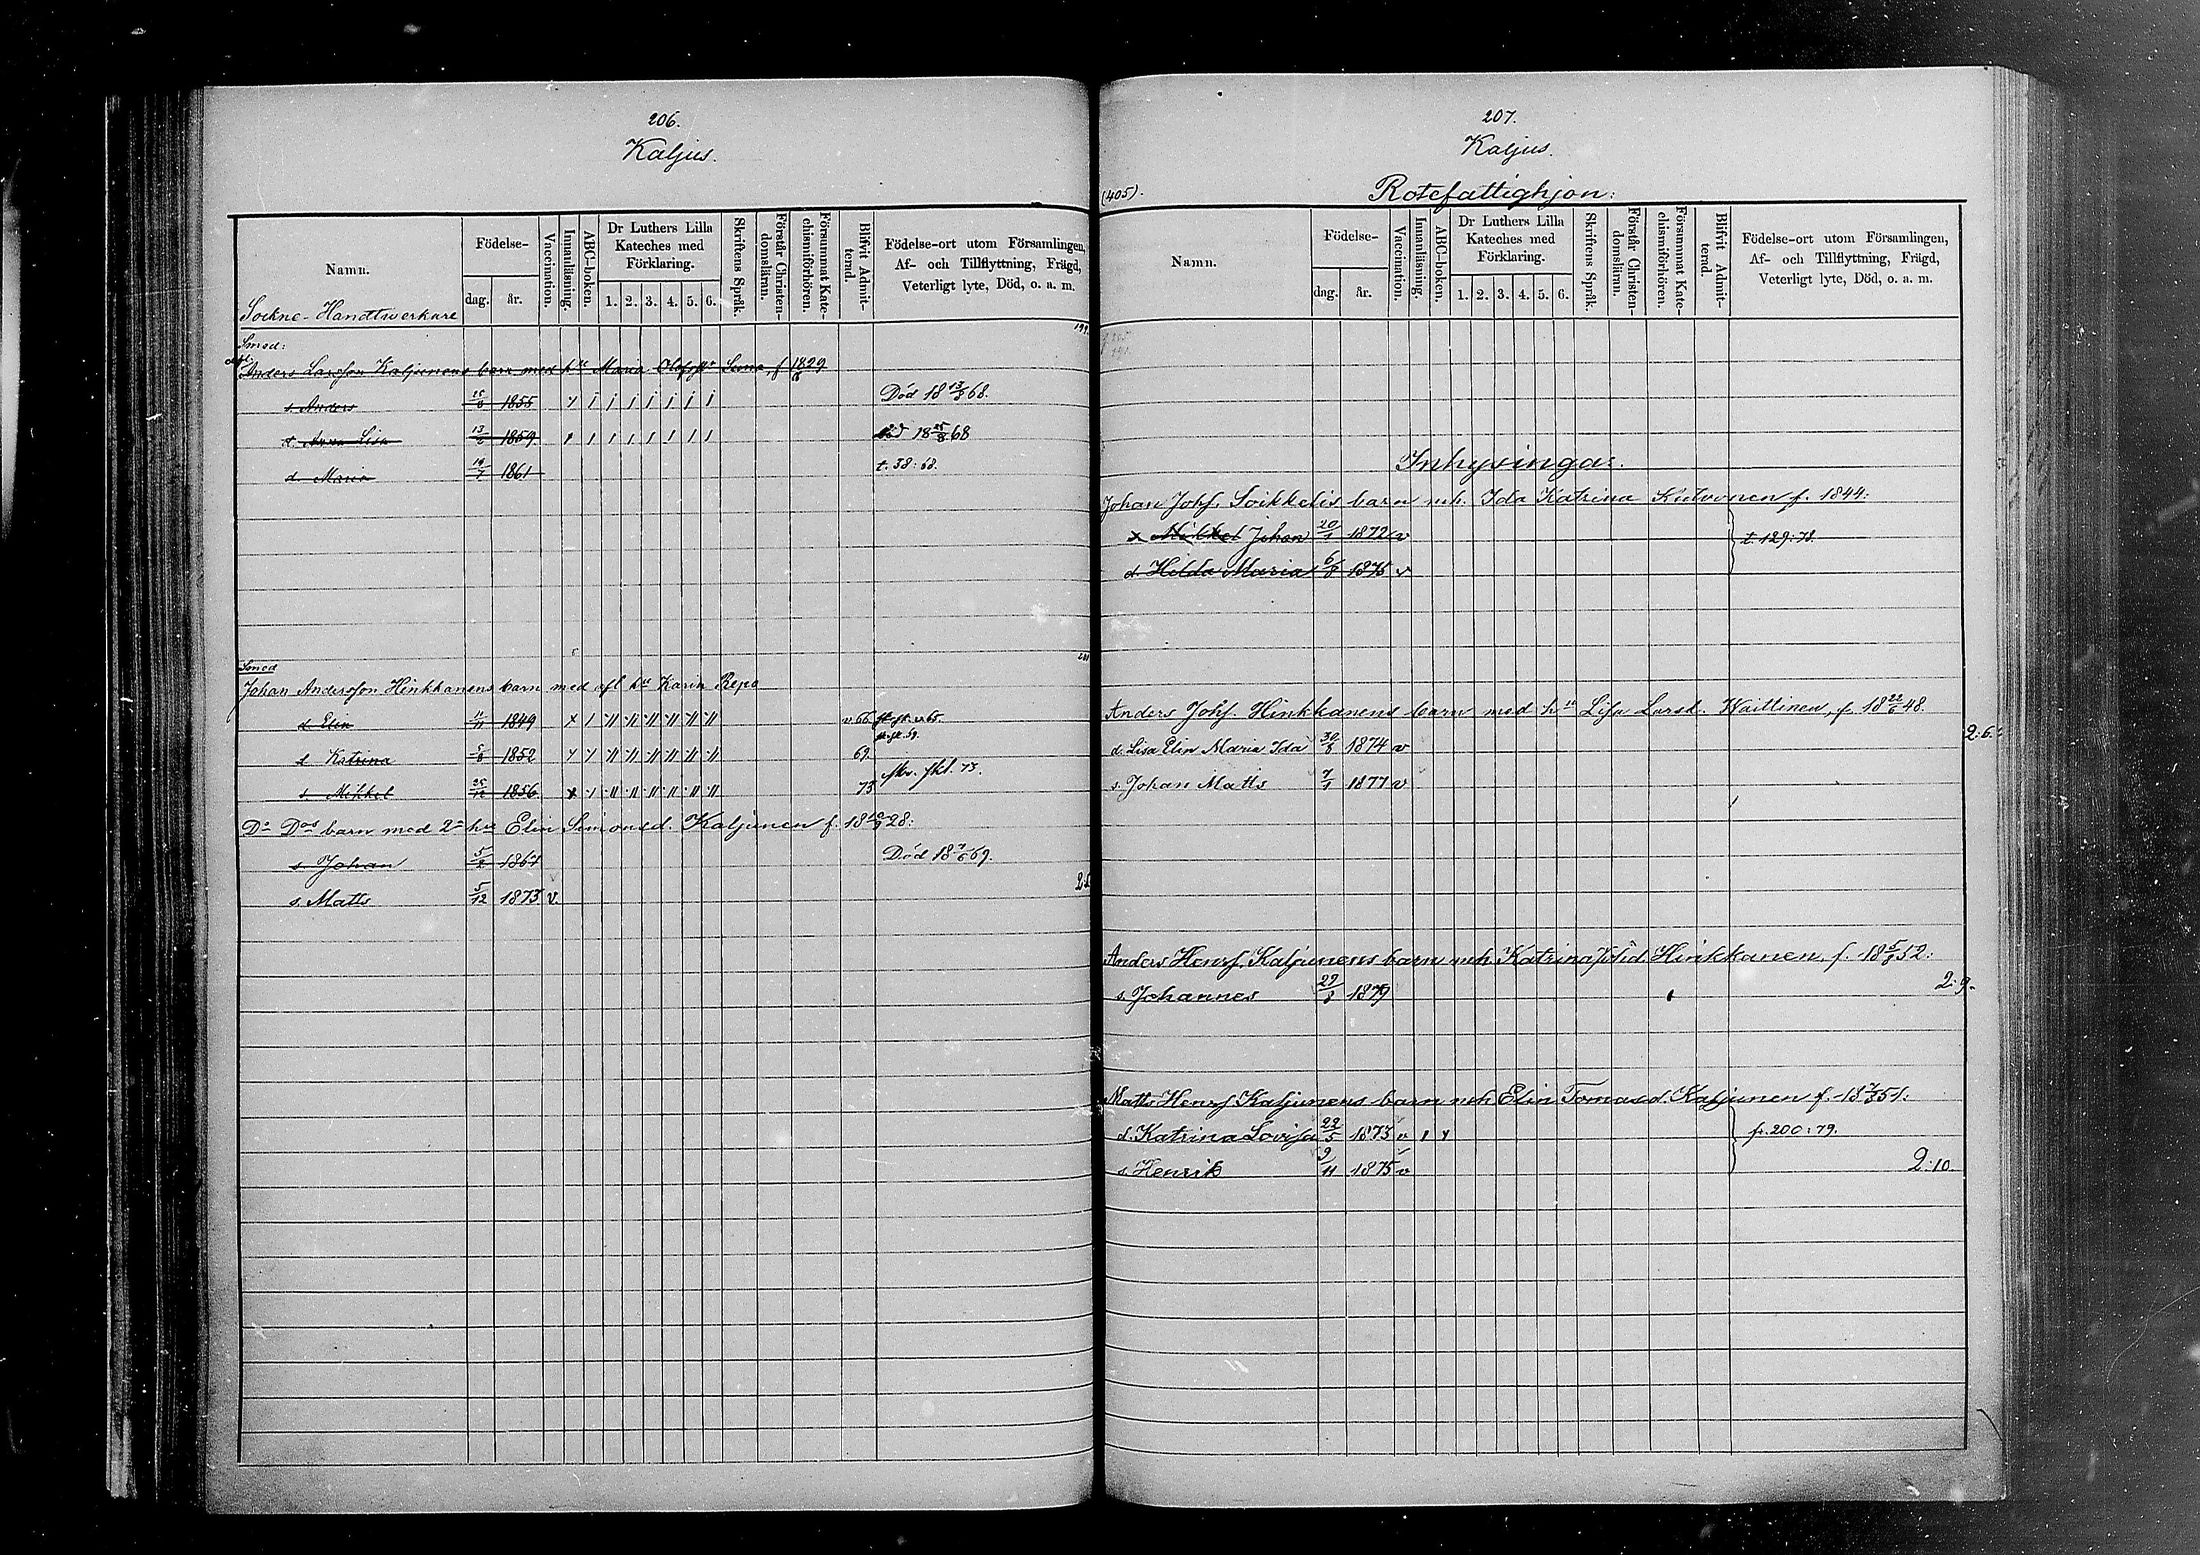 206.
Kaljus.
Namn.
Födelse-
dag.
år.
Vaccination.
Innanläsning.
ABC-boken.
Dr Luthers Lilla Kateches med Förklaring.
1. 2. 3. 4. 5. 6.
Skriftens Språk.
Förstår Christendomsläran.
Försummat Katechismiförhören.
Blifvit Admitterad.
Födelse-ort utom Församlingen, Af- och Tillflyttning, Frägd, Veterligt lyte, Död, o. a. m.
Sockne-Handtwerkare
199.
Smed:
Anders Larsson Kaljunens barn med hu Maria Olofsdr f 1829
s. Anders 1855 Död 18 13/8 68.
d. Anna Lisa 13/2 1859 död 18 25/8 68
d. Maria 19/7 1861 t. 38:68.
Smed
Johan Andersson Hinkkanens barn med afl hu Karin Repo
d. Elin 11/11 1849 v. 66
d. Katrina 5/8 1852 69.
s. Mikkel 25/12 1856 73 skr. skl. 73.
Do Dos barn med 2a hu Elin Simonsd. Kaljunen f. 18 28:
s. Johan 5/2 1867 Död 18 7/6 69.
s. Matts 5/12 1873 v.
207.
Kaljus.
(405).
Rotefattighjon:
Namn.
Födelse-
dag.
år.
Vaccination.
Innanläsning.
ABC-boken.
Dr Luthers Lilla Kateches med Förklaring.
1. 2. 3. 4. 5. 6.
Skriftens Språk.
Förstår Christendomsläran.
Försummat Katechismiförhören.
Blifvit Admitterad.
Födelse-ort utom Församlingen, Af- och Tillflyttning, Frägd, Veterligt lyte, Död, o. a. m.
Inhysingar.
Johan Johs. Soikkelis barn mh. Ida Katrina Kutvonen f. 1844:
s Mikkel Johan 20/1 1872 v t. 129:78.
d. Hilda Maria 6/8 1875 v
Anders Johs. Hinkkanens barn med hu Lisa Larsd. Waittinen, f. 18 22/6 48.
2:6.
d. Lisa Elin Maria Ida 30/8 1874 v
s. Johan Matts 7/1 1877 v
Anders Henrs. Kaljunens barn mh Katrina Johsd Hinkkanen, f. 18 5/8 52:
s. Johannes 29/8 1879 2:9.
Matts Henrs Kaljunens barn mh Elin Tomasd. Kaljunen f. 18 7/3 51:
d. Katrina Lovisa 22/5 1873 v fr. 200:79.
s. Henrik 9/11 1875 v 2:10.